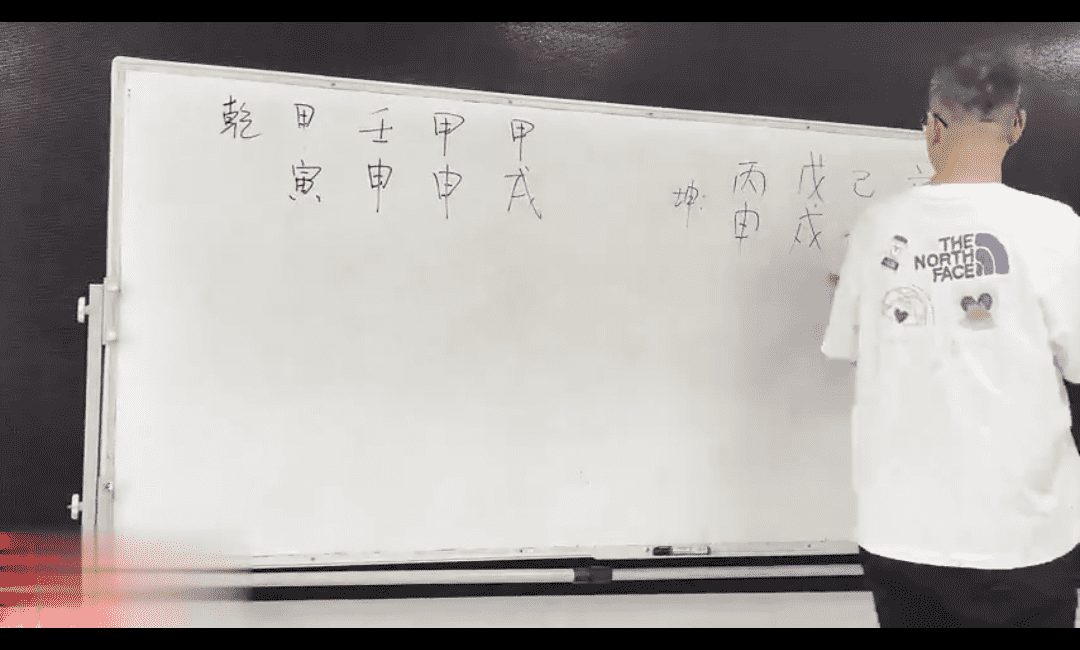 乾 甲 壬 甲 甲
寅 申 申 戌
坤: 丙 戊 己
申 戌
THE
NORTH
FACE